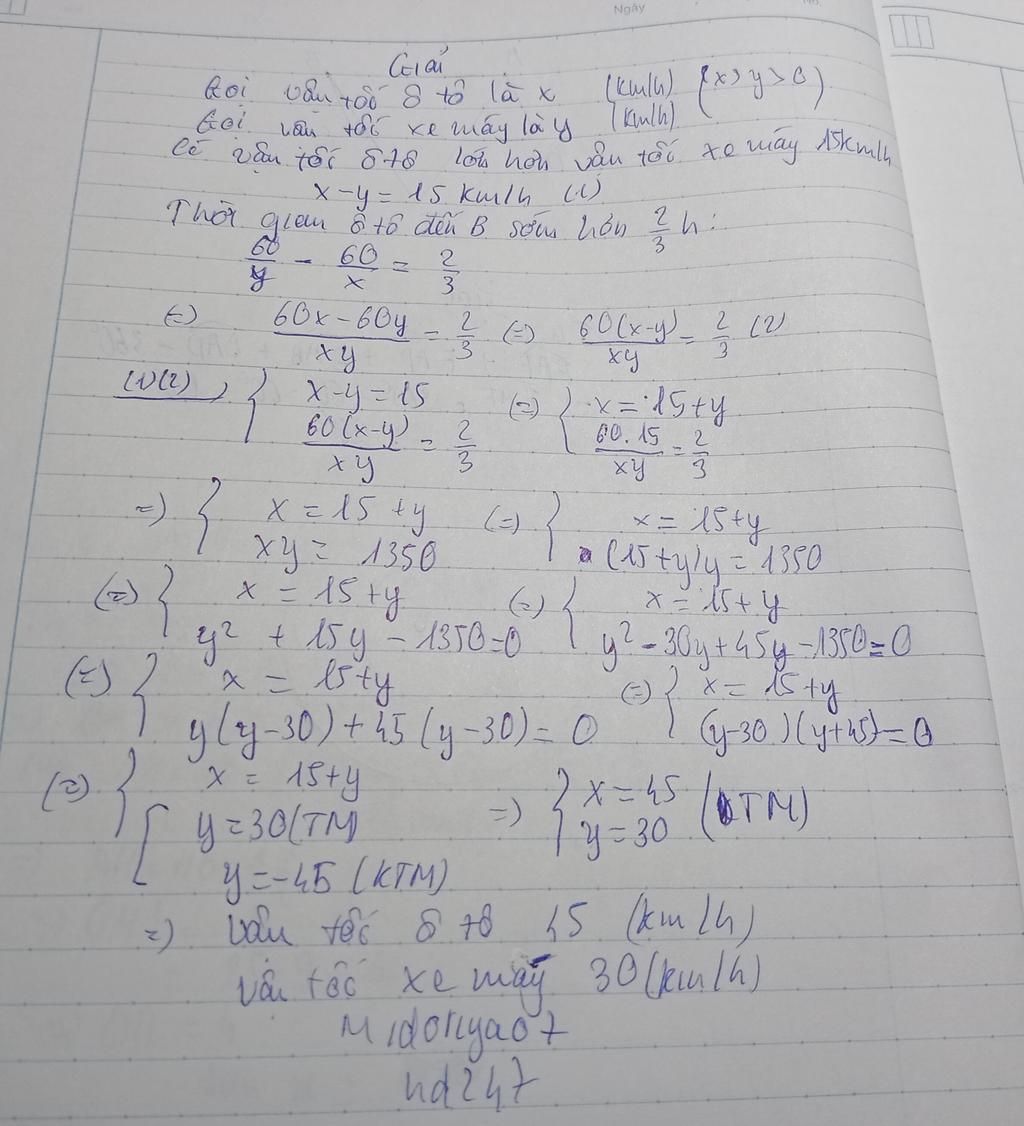 Ngày
Giải
Gọi vận tốc ô tô là x (km/h) (x>y>0)
Gọi vận tốc xe máy là y (km/h)
Có vận tốc ô tô lớn hơn vận tốc xe máy 15km/h
x-y=15 km/h (1)
Thời gian ô tô đến B sớm hơn 2/3 h:
60/y - 60/x = 2/3
(=) (60x-60y)/xy = 2/3 (=) 60(x-y)/xy = 2/3 (2)
(1)(2), { x-y=15 ; 60(x-y)/xy = 2/3 (=) { x=15+y ; 60.15/xy = 2/3
=) { x=15+y ; xy=1350 (=) { x=15+y ; (15+y)y=1350
(=) { x=15+y ; y²+15y-1350=0 (=) { x=15+y ; y²-30y+45y-1350=0
(=) { x=15+y ; y(y-30)+45(y-30)=0 (=) { x=15+y ; (y-30)(y+45)=0
(=) { x=15+y ; [ y=30(TM) ; y=-45(KTM) =) { x=45 ; y=30 (TM)
=) vận tốc ô tô 45 (km/h)
vận tốc xe máy 30(km/h)
Midoriya07
hd247